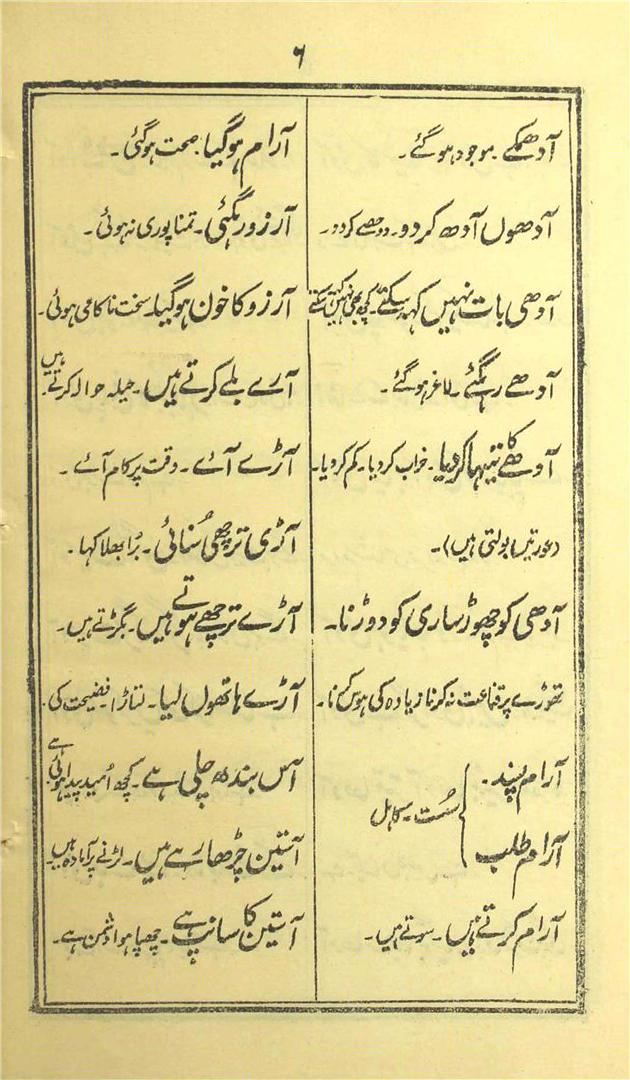 ۶
آدھمکے۔ موجود ہوگئے۔
آدھوں آدھ کردو۔ دو حصے کردو۔
آدھی بات نہیں کہہ سکتے۔ کچھ بھی نہیں کہہ سکتے
آدھے رہگئے۔ لاغر ہوگئے۔
آدھے کا تیہا کردیا۔ خراب کردیا۔ کم کردیا۔
(عورتیں بولتی ہیں)۔
آدھی کو چھوڑ ساری کو دوڑنا۔
تھوڑے پر قناعت نہ کرنا زیادہ کی ہوس کرنا۔
آرام پسند۔
آرام طلب } سُست۔ کاہل
آرام کرتے ہیں۔ سوتے ہیں۔
آرام ہوگیا۔ صحت ہوگئی۔
آرزو رہگئی۔ تمنا پوری نہ ہوئی۔
آرزو کا خون ہوگیا۔ سخت ناکامی ہوئی۔
آرے بلے کرتے ہیں۔ حیلہ حوالہ کرتے ہیں۔
آڑے آئے۔ وقت پر کام آئے۔
آڑی ترچھی سُنائی۔ بُرا بھلا کہا۔
آڑے ترچھے ہوتے ہیں۔ بگڑتے ہیں۔
آڑے ہاتھوں لیا۔ لتاڑا۔ فضیحت کی۔
آس بندھ چلی ہے۔ کچھ اُمید پیدا ہوئی ہے
آستین چڑھا رہے ہیں۔ لڑنے پر آمادہ ہیں۔
آستین کا سانپ ہے۔ چھپا ہوا دشمن ہے۔